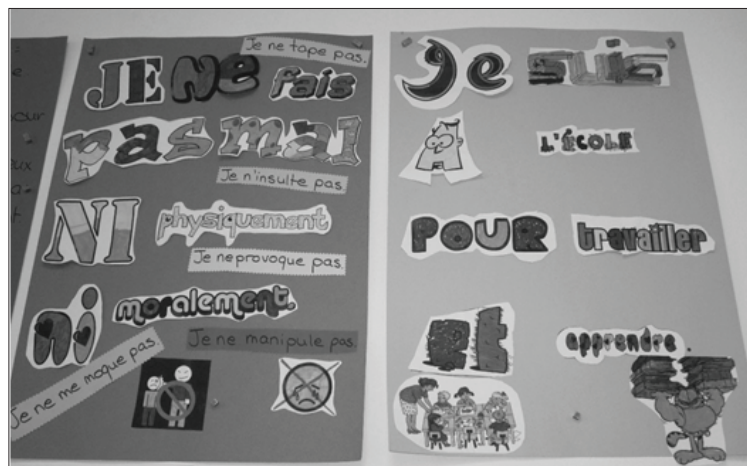 Je ne tape pas.
JE Ne fais
pas mal
Je n'insulte pas.
NI physiquement
Je ne provoque pas.
ni moralement.
Je ne manipule pas.
Je ne me moque pas.
Je suis
A L'ÉCOLE
POUR travailler
apprendre.